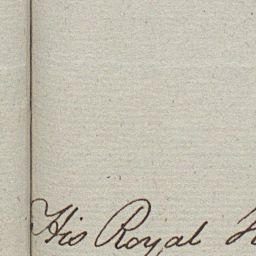 His Royal